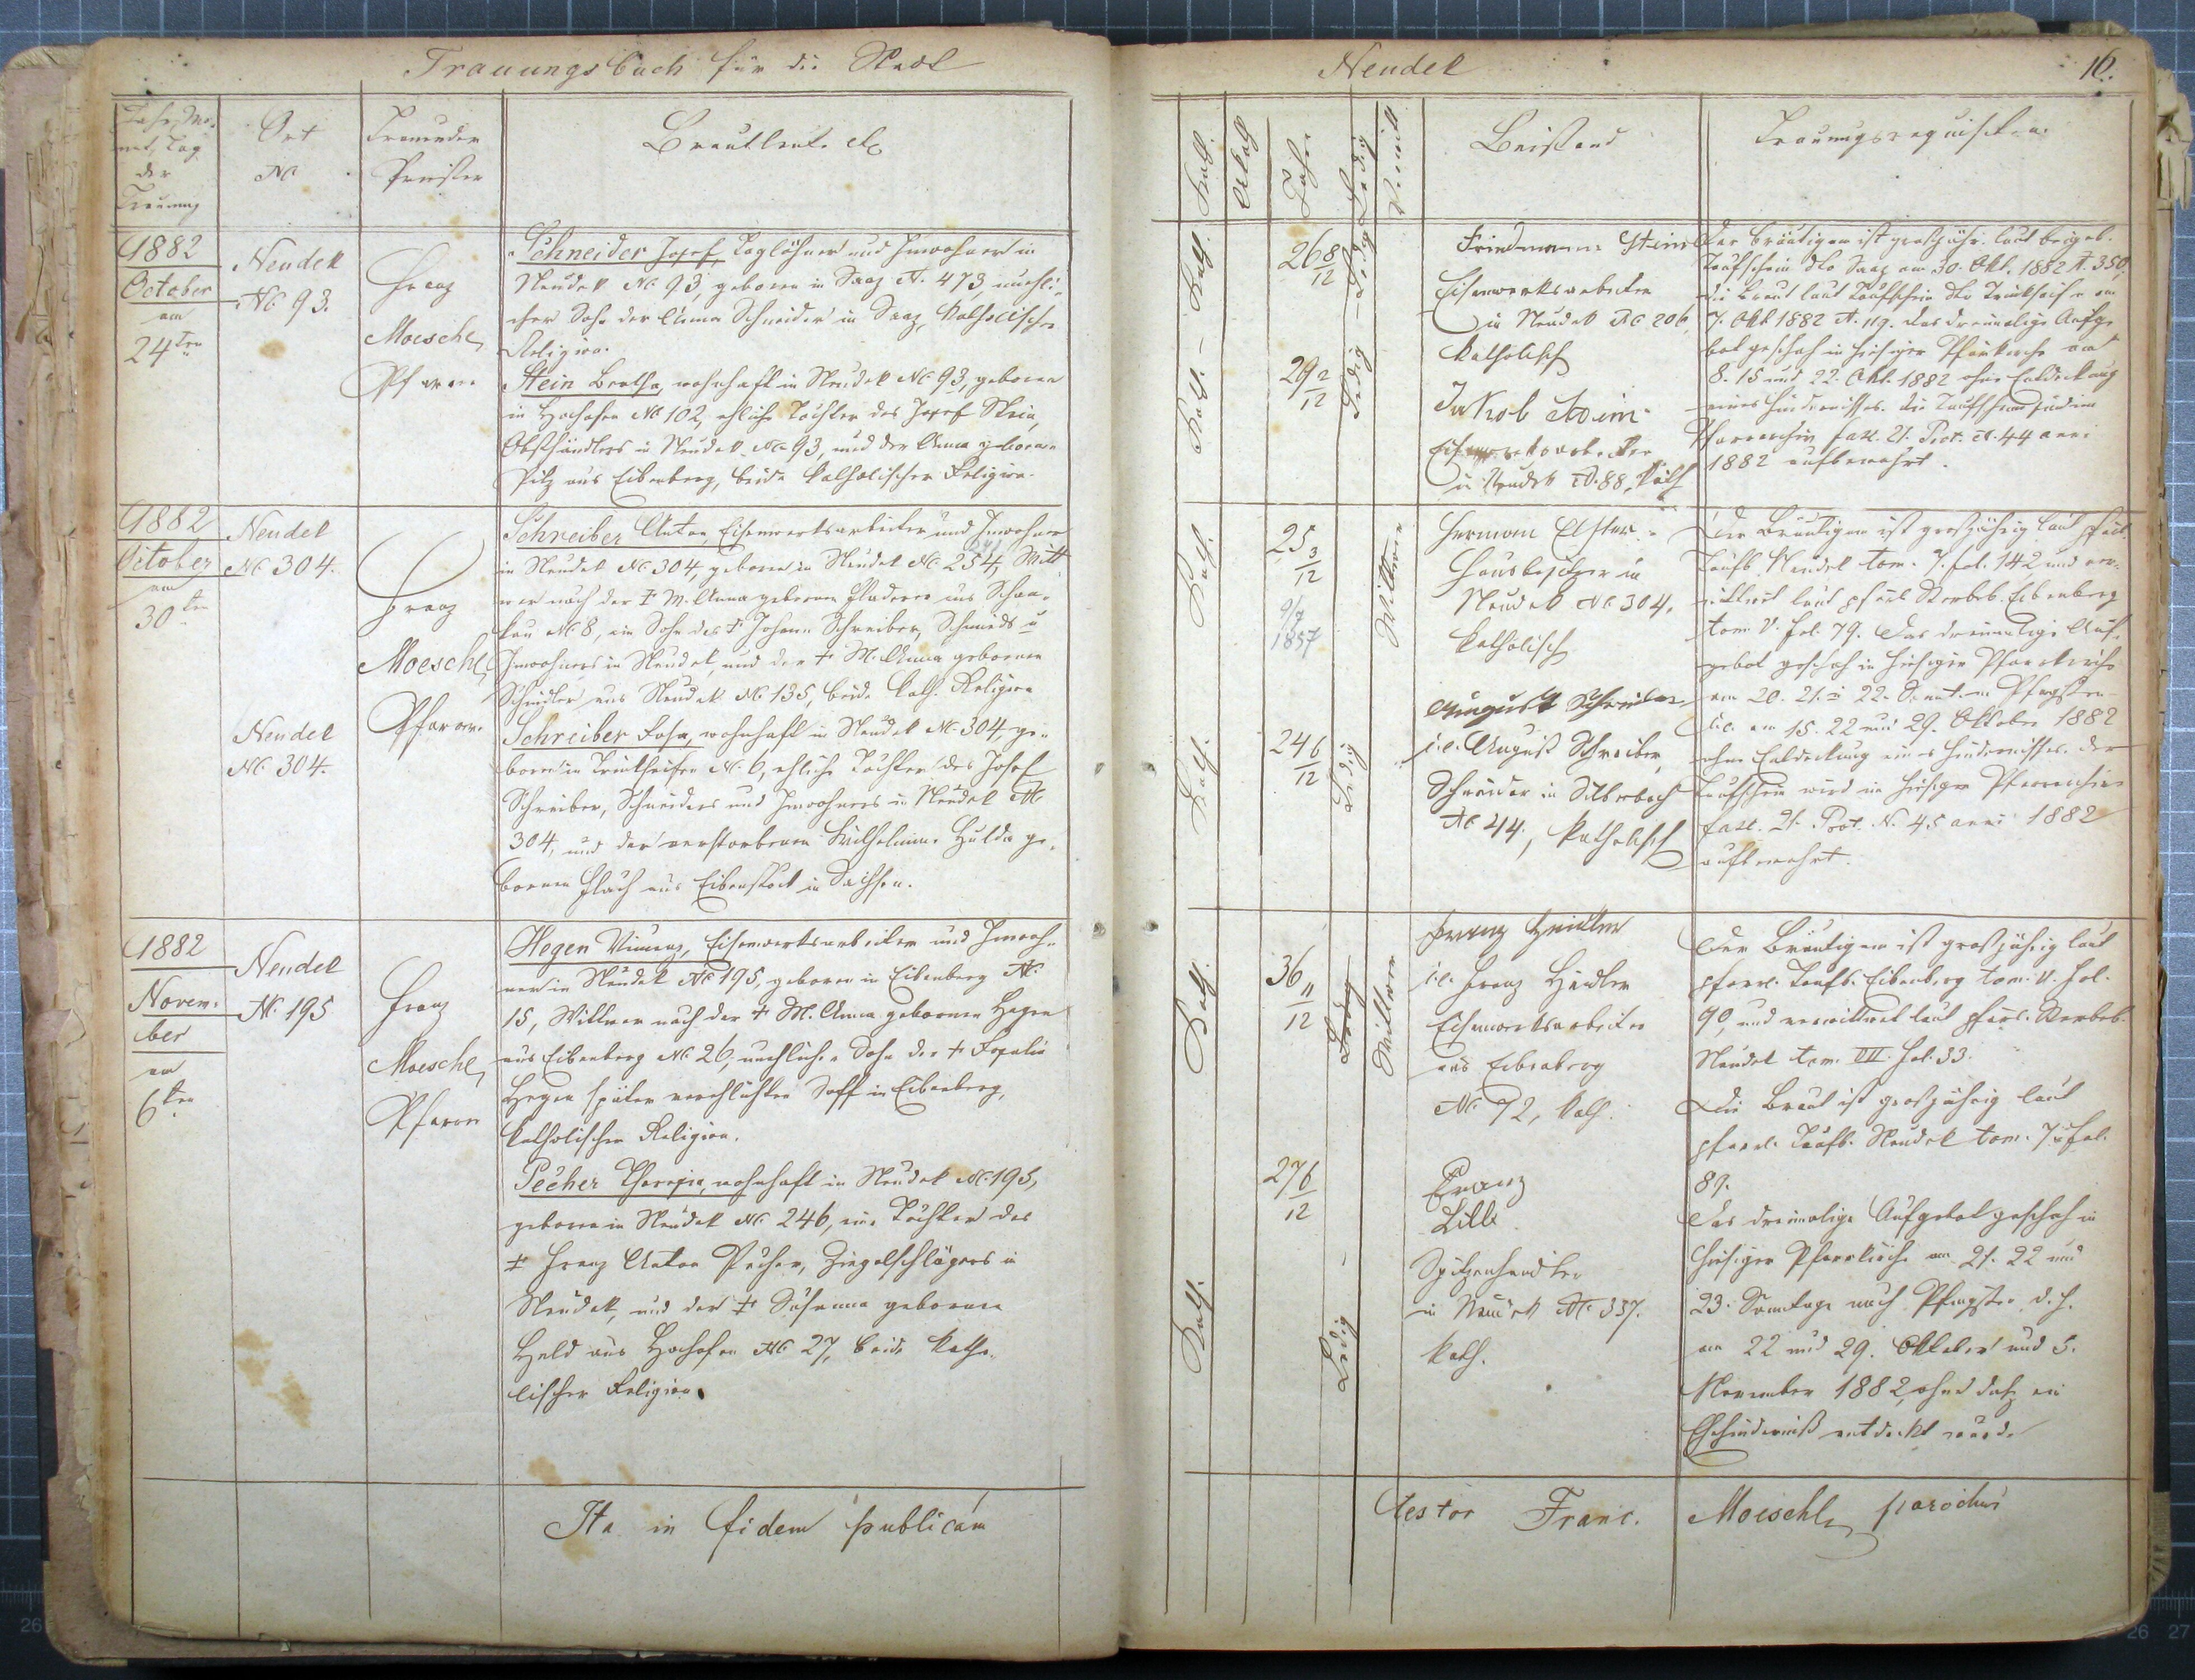 Trauungsbuch für die Stadt
Jahr, Mo-
nat, Tag
der
Trauung
Ort
No
Trauender
Priester
Brautleute etc
1882
October
am
24ten
Neudek
No 93.
Franz
Moeschl,
Pfarrer
Schneider Josef, Taglöhner und Inwohner in
Neudek No 93, geboren in Saaz N. 473, unehli-
cher Sohn der Anna Schneider in Saaz, katholischer
Religion.
Stein Bertha, wohnhaft in Neudek No 93, geboren
in Hochofen No 102, ehliche Tochter des Josef Stein,
Obsthändlers in Neudek No 93, und der Anna geborne
Pilz aus Eibenberg, beide katholischer Religion.
1882
October
am
30ten
Neudek
No 304.
Neudek
No 304.
Franz
Moeschl,
Pfarrer
Schreiber Anton, Eisenwerksarbeiter und Inwohner
in Neudek No 304, geboren in Neudek No 254, Witt-
wer nach der † M. Anna gebornen aus
No 8, ein Sohn des † Johann Schreiber, Schmieds u
Inwohners in Neudek, und der † M. Anna gebornen
Schindler aus Neudek No 135, beide kath. Religion
Schreiber Rosa, wohnhaft in Neudek No 304, ge-
boren in Trinkseifen No 6, ehliche Tochter des Josef
Schreiber, Schneiders und Inwohners in Neudek No
304, und der verstorbenen Wilhelmine Hulda ge-
bornen Flach aus Eibenstock in Sachsen.
1882
Novem-
ber
am
6ten
Neudek
N. 195
Franz
Moeschl,
Pfarrer
Hegen Vinzenz, Eisenwerksarbeiter und Inwoh-
ner in Neudek No 195, geboren in Eibenberg No
15, Wittwer nach der † M. Anna gebornen Hegen
aus Eibenberg No 26, unehlicher Sohn der † Rosalia
Hegen später verehlichten Hoff in Eibenberg,
katholischer Religion.
Pecher Theresia, wohnhaft in Neudek No 195,
geboren in Neudek No 246, eine Tochter des
† Franz Anton Pecher, Ziegelschlägers in
Neudek, und der † Susanna gebornen
Held aus Hochofen No 27, beide katho-
lischer Religion.
Ita in fidem publicam
Neudek
16.
Kath.
Akath
Jahre
Ledig
Verwitt.
Beistand
Trauungsrequisiten
Kath.
Kath.
26 8/12
29 2/12
Ledig
Ledig
Friedmann Stein
Eisenwerksarbeiter
in Neudek No 206,
katholisch
Jakob Stein
Eisenwerksarbeiter
in Neudek N. 88, kath
Der Bräutigam ist großjähr. laut beigeb.
Taufschein dto Saaz am 30. Okt. 1882 N. 350.
die Braut laut Taufschein dto Trinkseifen am
7. Okt 1882 N. 119. Das dreimalige Aufge-
bot geschah in hiesiger Pfarrkirche am
8. 15 und 22. Okt. 1882 ohne Entdeckung
eines Hindernisses. Die Taufscheine sind im
Pfarrarchiv fasc. 21. Prot. N. 44 anni
1882 aufbewahrt.
Kath.
Kath.
25 3/12
9/7
1857
24 6/12
Wittwer
Ledig
Herman Elster
Hausbesitzer in
Neudek No 304.
katholisch
August Schreiber
i.e. August Schreiber,
Schneider in Silberbach
No 44, katholisch
Der Bräutigam ist großjährig laut pfarrl.
Taufb. Neudek tom. 7. fol. 142 und ver-
wittwet laut pfarrl Sterbeb. Eibenberg
tom. V. fol. 79. Das dreimalige Auf-
gebot geschah in hiesiger Pfarrkirche
am 20. 21. u 22. Sonnt. n. Pfingsten
d.i. am 15. 22 und 29. Oktober 1882
ohne Entdeckung eines Hindernisses. Der
Taufschein wird im hiesigen Pfarrarchive
fasc. 21. Prot. N. 45 anni 1882
aufbewahrt.
Kath.
Kath.
36 11/12
27 6/12
Ledig
Wittwer
Ledig
Franz Heidler
i.e. Franz Heidler
Eisenwerksarbeiter
aus Eibenberg
No 72, kath.
Franz
Lill
Spitzenhändler
in Neudek No 337.
kath.
Der Bräutigam ist großjährig laut
pfarrl. Taufb. Eibenberg tom. V. fol.
90, und verwittwet laut pfarrl. Sterbeb.
Neudek tom. VII. fol. 33.
Die Braut ist großjährig laut
pfarrl. Taufb. Neudek tom. 7. fol.
89.
Das dreimalige Aufgebot geschah in
hiesiger Pfarrkirche am 21. 22 und
23. Sonntage nach Pfingsten d.h.
am 22 und 29. Oktober und 5.
November 1882, ohne daß ein
Ehehinderniß entdeckt wurde
testor Franc. Moeschl, parochus
26
26 27